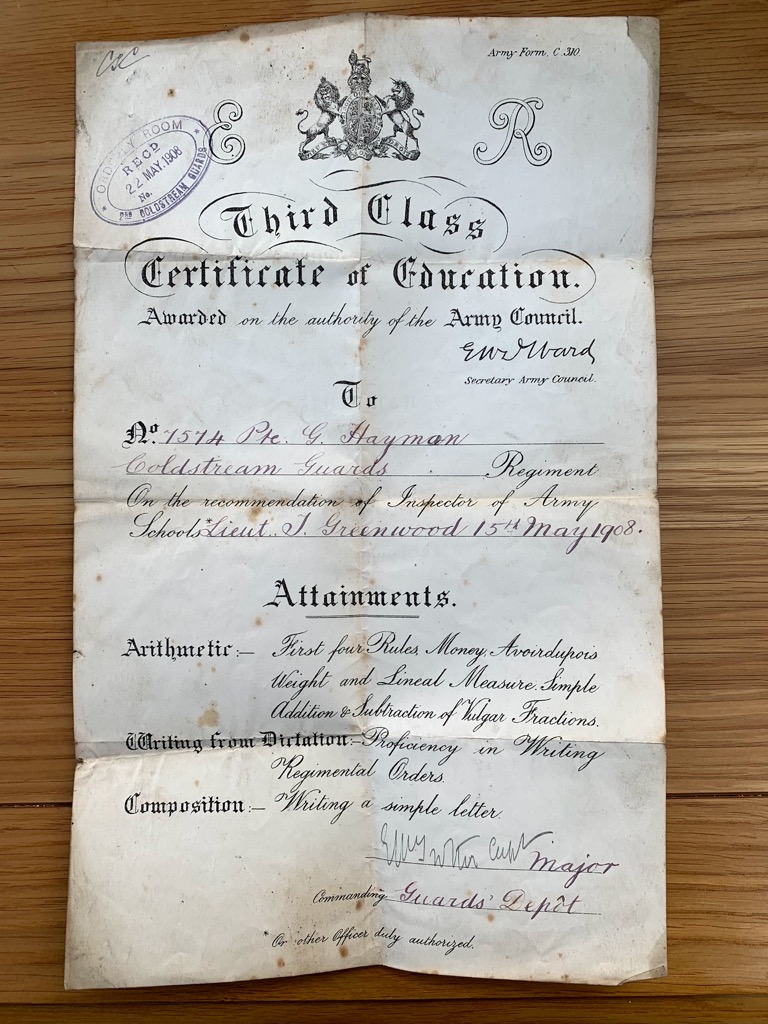 Army Form, C. 310.
E R
ORDERLY ROOM
RECD
22 MAY.1908
No.
COLDSTREAM GUARDS
Third Class
Certificate of Education.
Awarded on the authority of the Army Council.
EWDWard
Secretary Army Council.
To
No. 7574 Pte. G. Hayman
Coldstream Guards Regiment
On the recommendation of Inspector of Army
Schools Lieut. J. Greenwood 15th May 1908.
Attainments.
Arithmetic:— First four Rules, Money, Avoirdupois
Weight and Lineal Measure. Simple
Addition & Subtraction of Vulgar Fractions.
Writing from Dictation:— Proficiency in Writing
Regimental Orders.
Composition:— Writing a simple letter.
Capt Major
Commanding Guards' Depôt
Or other Officer duly authorized.